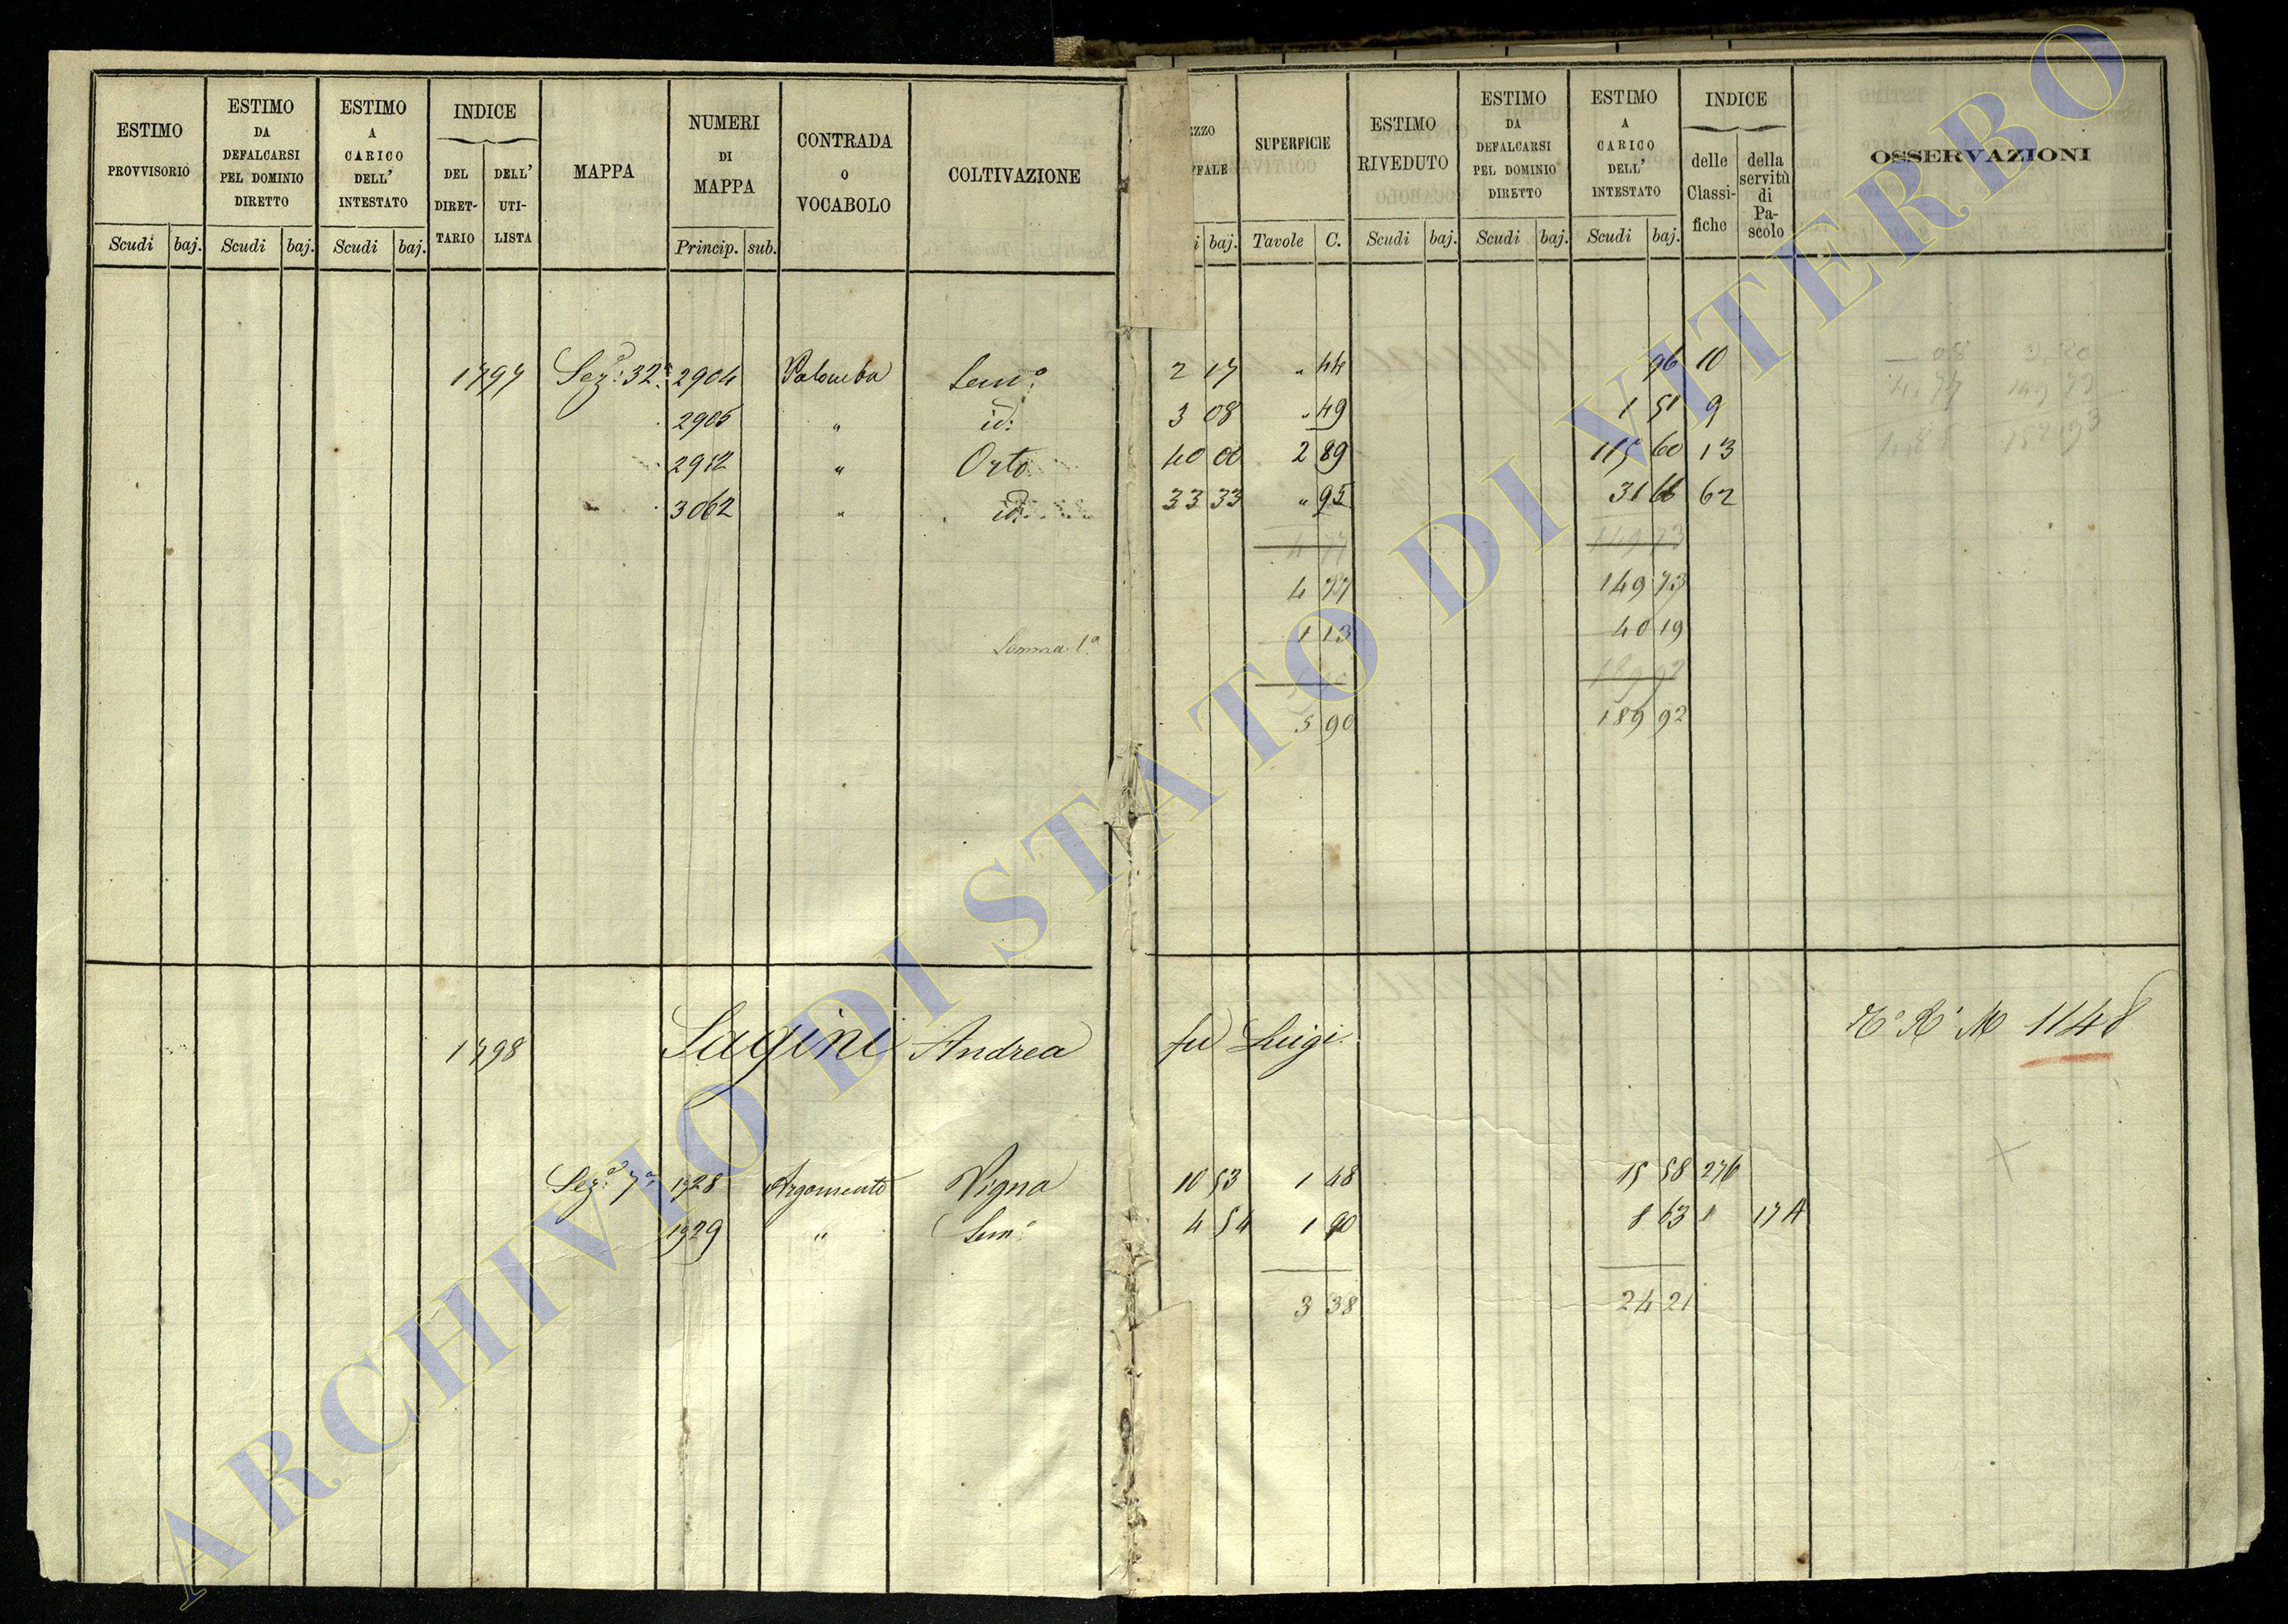 ESTIMO PROVVISORIO Scudi baj.
ESTIMO DA DEFALCARSI PEL DOMINIO DIRETTO Scudi baj.
ESTIMO A CARICO DELL' INTESTATO Scudi baj.
INDICE DEL DIRET-TARIO DELL' UTI-LISTA
MAPPA
NUMERI DI MAPPA Princip. sub.
CONTRADA O VOCABOLO
COLTIVAZIONE
ZZO FFALE i baj.
SUPERFICIE Tavole C.
ESTIMO RIVEDUTO Scudi baj.
ESTIMO DA DEFALCARSI PEL DOMINIO DIRETTO Scudi baj.
ESTIMO A CARICO DELL' INTESTATO Scudi baj.
INDICE delle Classi-fiche della servitù di Pa-scolo
OSSERVAZIONI
1797 Sez: 32a 2904 Palomba Semo 2 17 " 44 96 10
2905 " id: 3 08 " 49 1 51 9
2912 " Orto 40 00 2 89 115 60 13
3062 " id: 33 33 " 95 31 66 62
4 77 149 73
Somma 1a 1 13 40 19
5 90 189 92
1798 Sagini Andrea fu Luigi 1148
Sez: 7a 1728 Argomento Vigna 10 53 1 48 15 58 276
1729 " Semo 4 54 1 90 8 63 1 174
3 38 24 21
ARCHIVIO DI STATO DI VITERBO